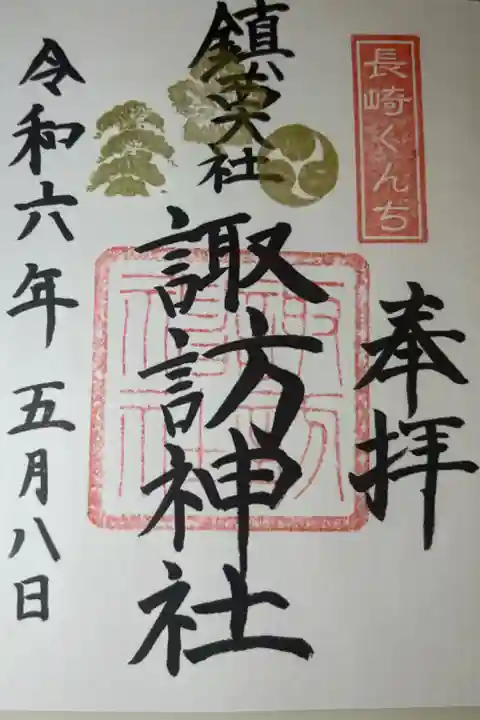 長崎くんち
奉拝
鎮西大社
諏訪神社
令和六年五月八日